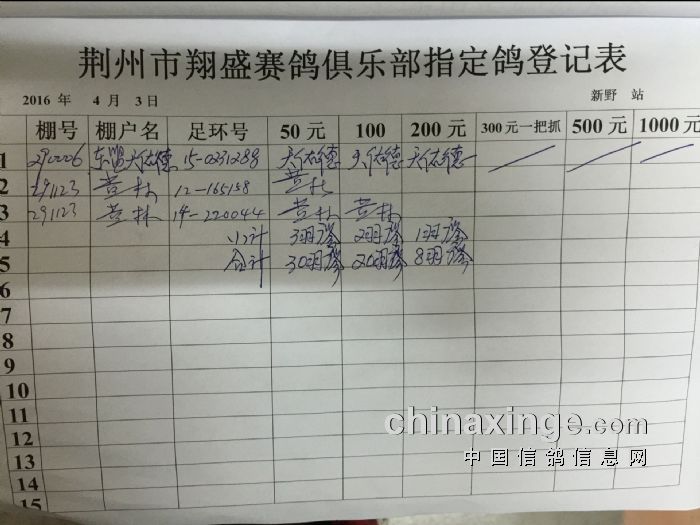 荆州市翔盛赛鸽俱乐部指定鸽登记表
2016 年 4 月 3 日 新野 站
棚号 棚户名 足环号 50 元 100 200 元 300 元一把抓 500 元 1000 元
1 290006 天佑德 15-0231288 天佑德 天佑德 天佑德
2 291123 12-165158
3 291123 14-220044
4 小计 3羽 2羽 1羽
5 合计 30羽 20羽 8羽
6
7
8
9
10
11
12
13
14
15
chinaxinge.com
中国信鸽信息网